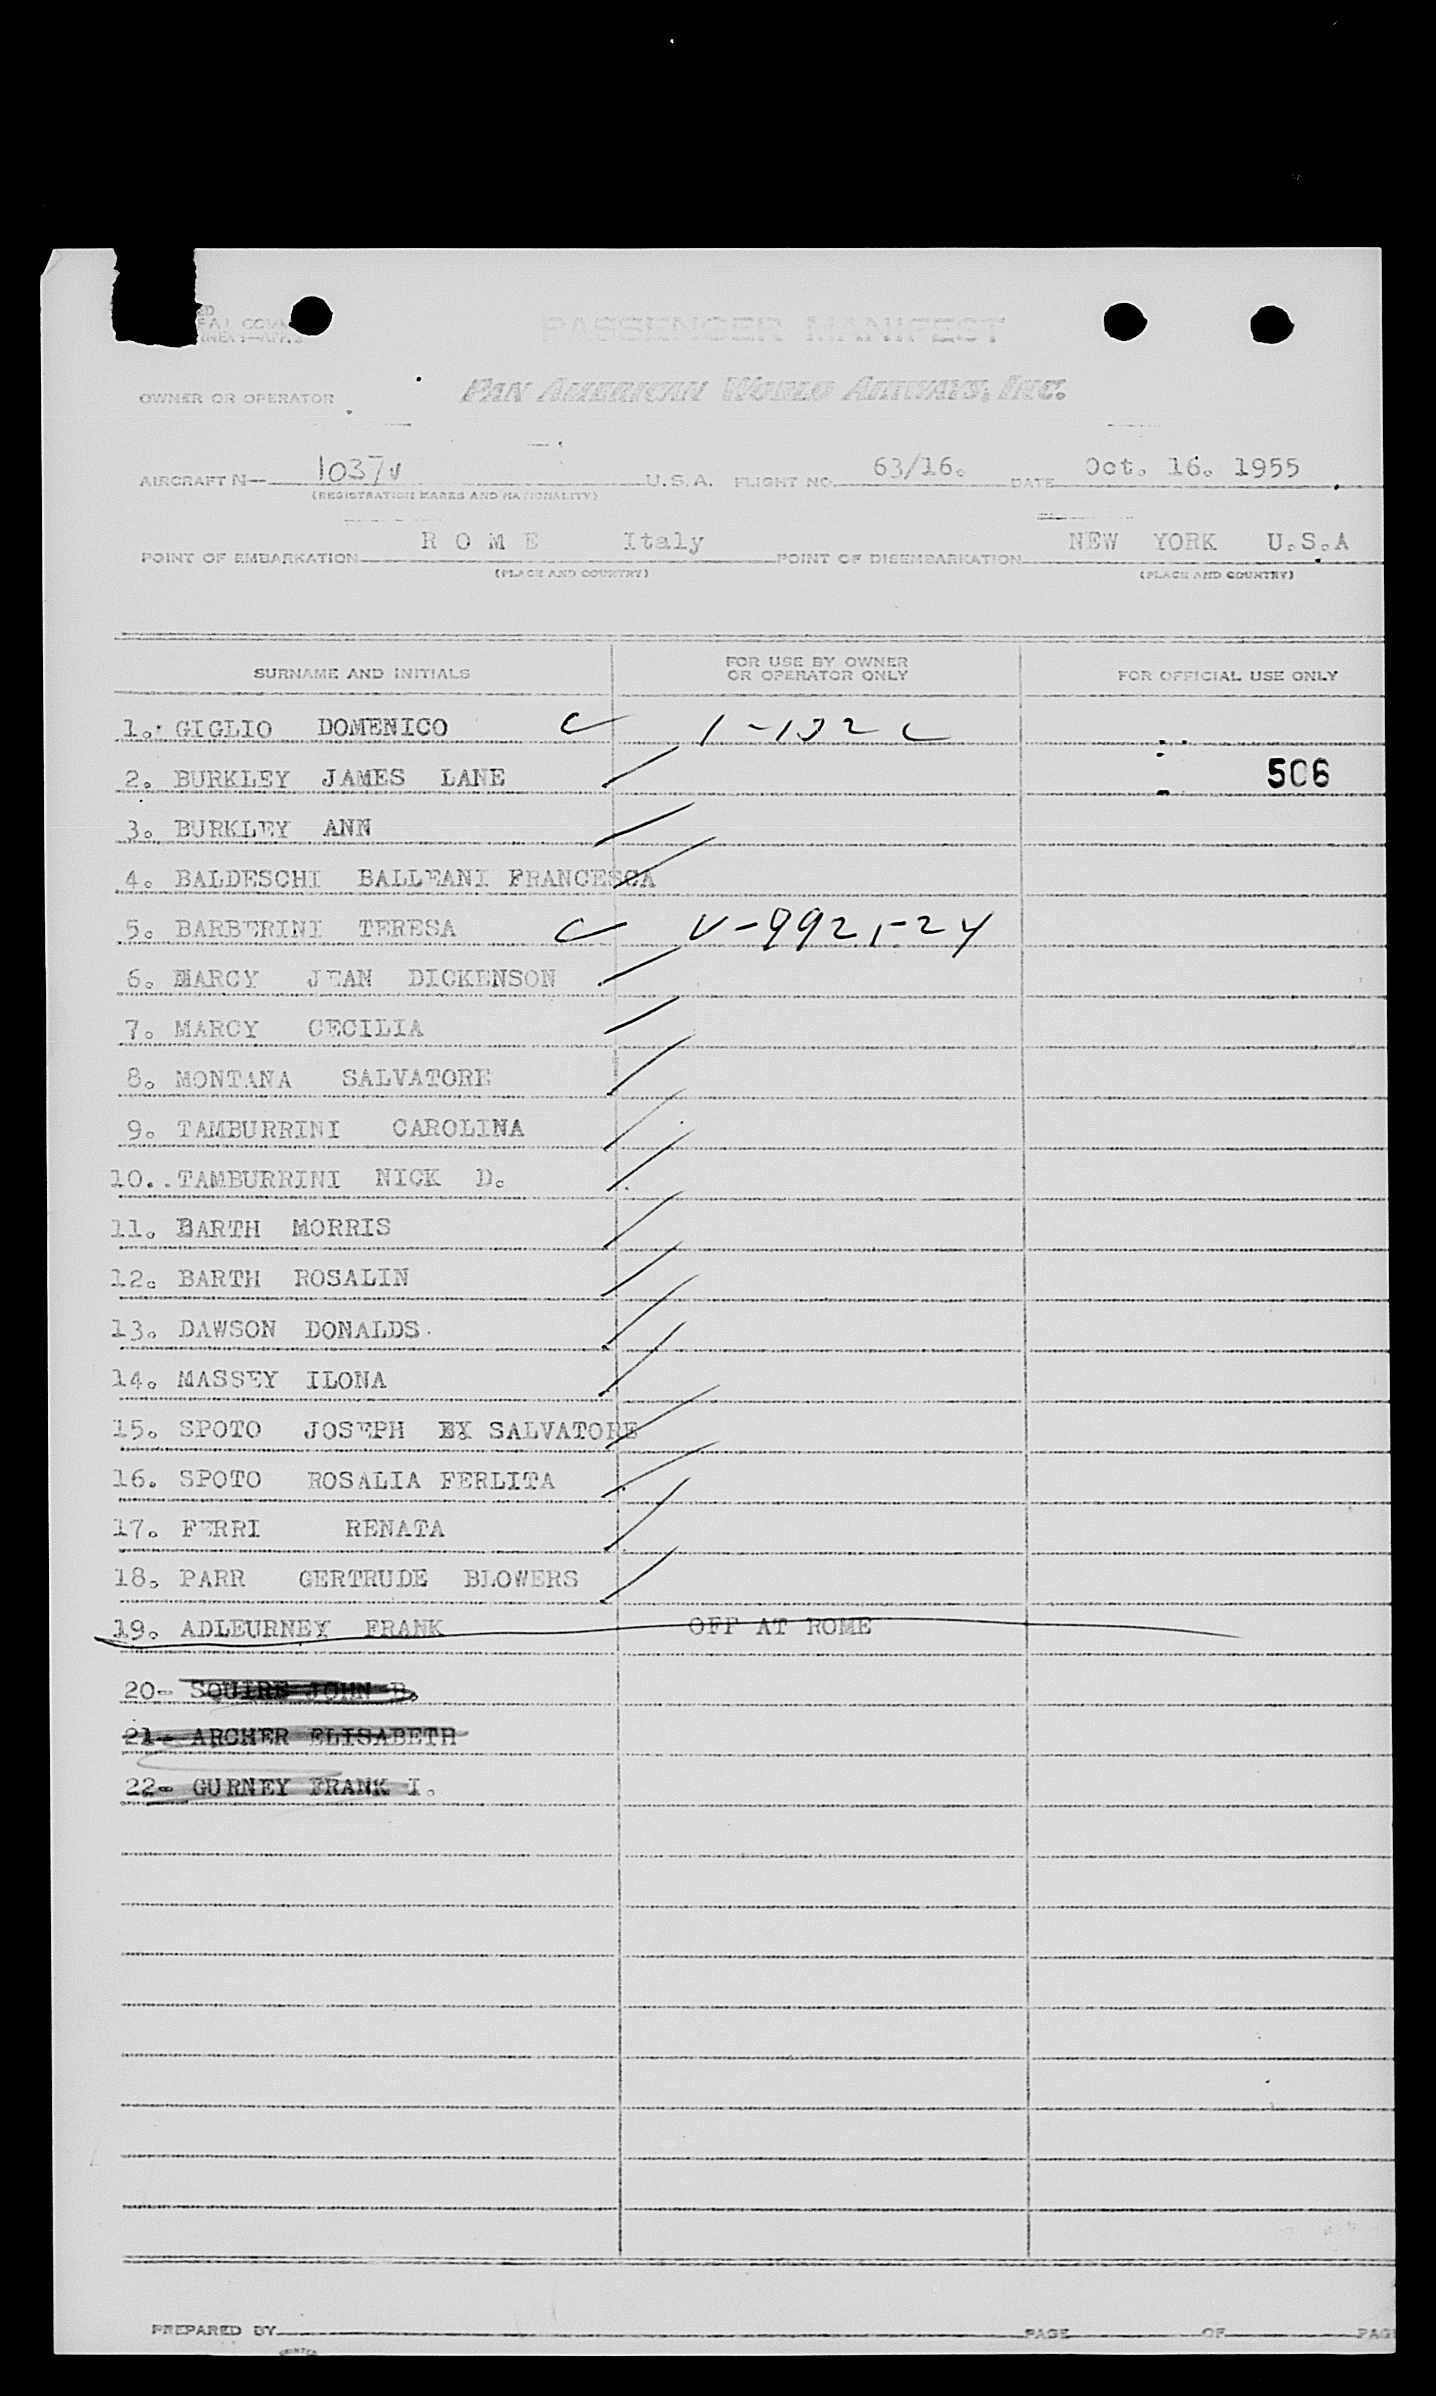 PASSENGER MANIFEST
OWNER OR OPERATOR PAN AMERICAN WORLD AIRWAYS, INC.
AIRCRAFT N— 1037V U.S.A. FLIGHT NO. 63/16. DATE Oct. 16. 1955
(REGISTRATION MARKS AND NATIONALITY)
POINT OF EMBARKATION R O M E Italy POINT OF DISEMBARKATION NEW YORK U.S.A
(PLACE AND COUNTRY) (PLACE AND COUNTRY)
SURNAME AND INITIALS FOR USE BY OWNER OR OPERATOR ONLY FOR OFFICIAL USE ONLY
1. GIGLIO DOMENICO C
2. BURKLEY JAMES LANE 506
3. BURKLEY ANN
4. BALDESCHI BALLEANI FRANCESCA
5. BARBERINI TERESA C
6. MARCY JEAN DICKENSON
7. MARCY CECILIA
8. MONTANA SALVATORE
9. TAMBURRINI CAROLINA
10.. TAMBURRINI NICK D.
11. BARTH MORRIS
12. BARTH ROSALIN
13. DAWSON DONALDS.
14. MASSEY ILONA
15. SPOTO JOSEPH EX SALVATORE
16. SPOTO ROSALIA FERLITA
17. FERRI RENATA
18. PARR GERTRUDE BLOWERS
19. ADLEURNEY FRANK OFF AT ROME
20- SQUIRE JOHN B.
21- ARCHER ELISABETH
22- GURNEY FRANK I.
PREPARED BY PAGE OF PAG